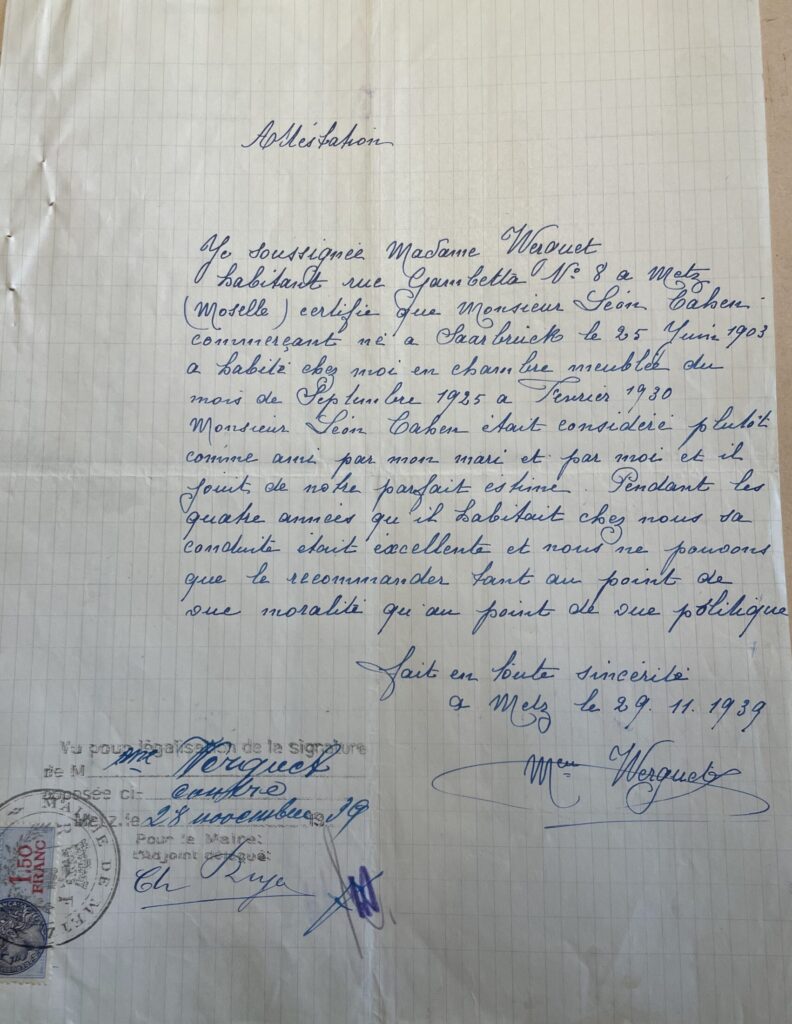 Attéstation
Je soussignée Madame Werquet
habitant rue Gambetta No 8 a Metz
(Moselle) certifie que Monsieur Léon Cahen
commerçant né a Saarbrück le 25 Juin 1903
a habité chez moi en chambre meublée du
mois de Septembre 1925 a Fevrier 1930
Monsieur Léon Cahen était considéré plutôt
comme ami par mon mari et par moi et il
jouit de notre parfait estime. Pendant les
quatre années qu'il habitait chez nous sa
conduite était éxcellente et nous ne pouvons
que le recommander tant au point de
vue moralité qu'au point de vue politique
fait en toute sincérité
a Metz le 29. 11. 1939
Werquet
Vu pour légalisation de la signature
de M me Werquet
apposée ci- contre
Metz, le 28 novembre 1939
Pour le Maire:
L'adjoint délégué:
Ch
MAIRIE DE METZ
1,50
FRANC